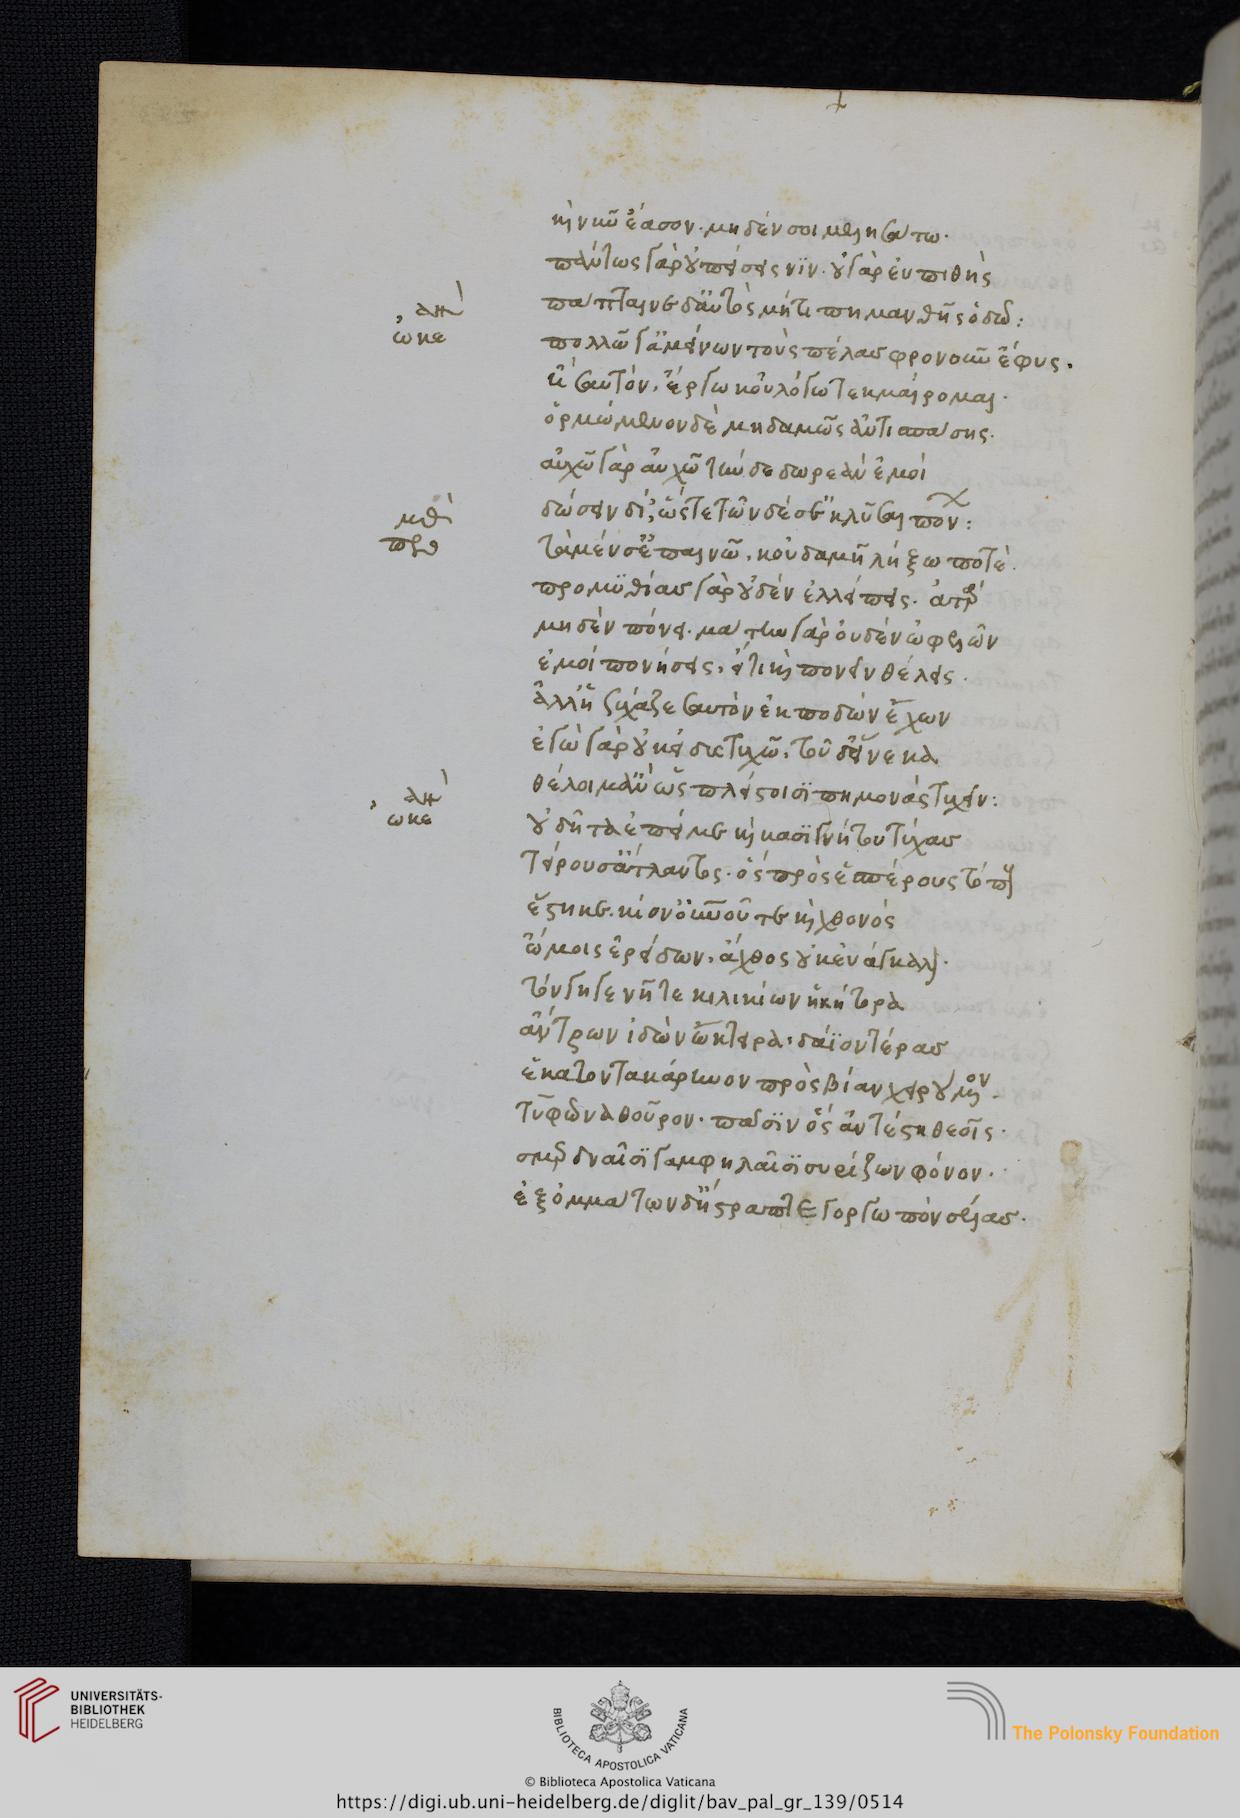 καὶ νῦν ἔασον. μηδέν σοι μελησάτω.
πάντως γὰρ οὐ πείσεις νιν. οὐ γὰρ εὐπιθής
πάπταινε δ' αὐτὸς μή τι πημανθῇς ὁδῷ:
πολλῷ γ' ἀμείνων τοὺς πέλας φρενοῦν ἔφυς.
ἢ σαυτόν. ἔργῳ κοὐ λόγῳ τεκμαίρομαι.
ὁρμώμενον δὲ μηδαμῶς ἀντισπάσῃς.
αὐχῶ γὰρ αὐχῶ τήνδε δωρεὰν ἐμοὶ
δώσειν δί', ὥστε τῶνδέ σ' ἐκλῦσαι πόνων:
τὰ μέν σ' ἐπαινῶ, κοὐδαμῇ λήξω ποτέ.
προμυθίας γὰρ οὐδὲν ἐλλείπεις. ἀτὰρ
μηδὲν πόνει. μάτην γὰρ οὐδὲν ὠφελῶν
ἐμοὶ πονήσεις, εἴ τι καὶ πονεῖν θέλεις.
ἀλλ' ἡσύχαζε σαυτὸν ἐκποδὼν ἔχων
ἐγὼ γὰρ οὐκ εἰ δυστυχῶ, τοῦδ' εἵνεκα
θέλοιμ' ἂν ὡς πλείστοισι πημονὰς τυχεῖν:
οὐ δῆτα ἐπεί με καὶ κασιγνήτου τύχας
τείρουσ' ἄτλαντος. ὃς πρὸς ἑσπέρους τόπους
ἕστηκε. κίον' οὐρανοῦ τε καὶ χθονὸς
ὤμοις ἐρείδων, ἄχθος οὐκ εὐάγκαλον.
τὸν γηγενῆ τε κιλικίων οἰκήτορα
ἄντρων ἰδὼν ᾤκτειρα. δάϊον τέρας
ἑκατοντακάρηνον πρὸς βίαν χειρούμενον.
τυφῶνα θοῦρον. πᾶσιν ὃς ἀντέστη θεοῖς.
σμερδναῖσι γαμφηλαῖσι συρίζων φόνον.
ἐξ ὀμμάτων δ' ἤστραπτε γοργωπὸν σέλας.
UNIVERSITÄTS-
BIBLIOTHEK
HEIDELBERG
BIBLIOTECA APOSTOLICA VATICANA
The Polonsky Foundation
© Biblioteca Apostolica Vaticana
https://digi.ub.uni-heidelberg.de/diglit/bav_pal_gr_139/0514